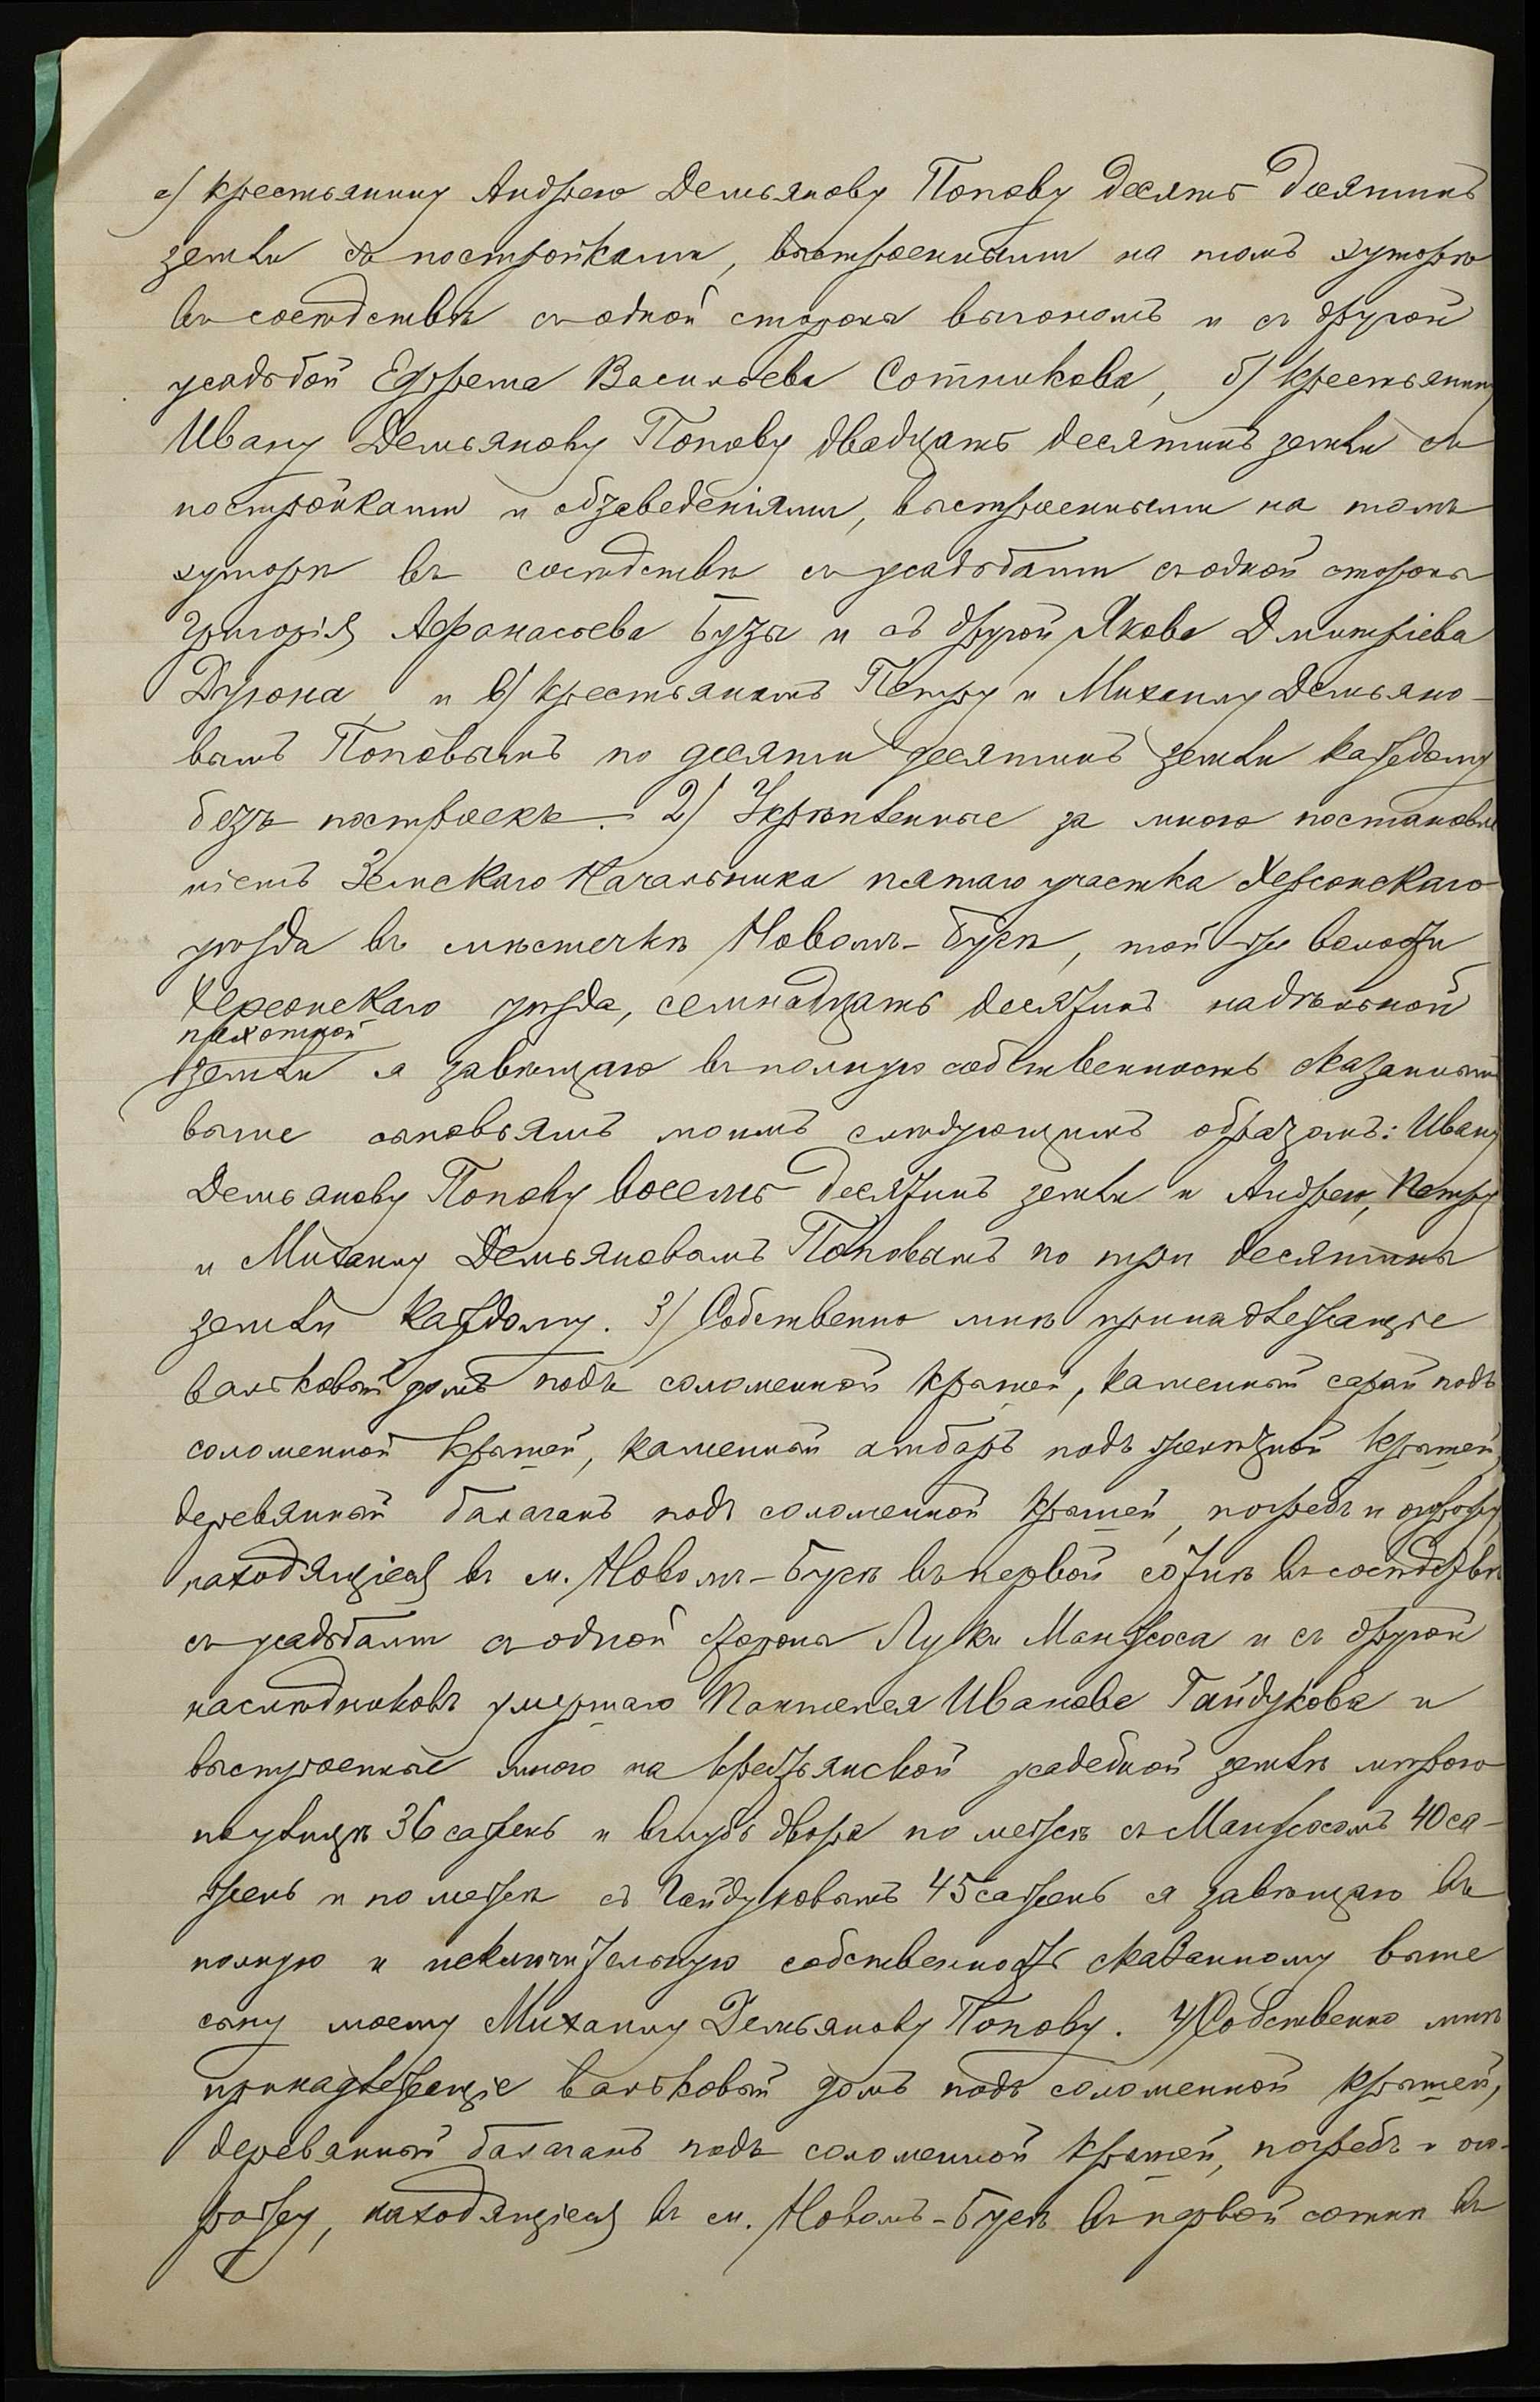 а) крестьянину Андрею Демьянову Попову десять десятинъ
земли съ постройками, выстроенными на томъ хуторѣ
въ сосѣдствѣ съ одной стороны выгономъ и съ другой
усадьбой Ефрема Васильева Сотникова, б) крестьянину
Ивану Демьянову Попову двадцать десятинъ земли съ
постройками и обзаведеніями, выстроенными на томъ
хуторѣ въ сосѣдствѣ съ усадьбами съ одной стороны
Григорія Афанасьева Бузы и съ другой Якова Дмитріева
Дугона и в) крестьянамъ Петру и Михаилу Демьяно-
вымъ Поповымъ по десяти десятинъ земли каждому
безъ построекъ. 2) Укрѣпленные за мною постановле
ніемъ Земскаго Начальника пятаго участка Херсонскаго
уѣзда въ мѣстечкѣ Новомъ-Бугѣ, той-же волости
Херсонскаго уѣзда, семнадцать десятинъ надѣльной
пахотной
земли я завѣщаю въ полную собственность сказаннымъ
выше сыновьямъ моимъ слѣдующимъ образомъ: Ивану
Демьянову Попову восемь десятинъ земли и Андрею, Петру
и Михаилу Демьяновымъ Поповымъ по три десятины
земли каждому. 3) Собственно мнѣ принадлежащіе
вальковый домъ подъ соломенной крышей, каменный сарай подъ
соломенной крышей, каменный амбаръ подъ желѣзной крышей,
деревянный балаганъ подъ соломенной крышей, погребъ и огорожу,
находящіеся въ м. Новомъ-Бугѣ въ первой сотнѣ въ сосѣдствѣ
съ усадьбами съ одной стороны Луки Манжоса и съ другой
наслѣдниковъ умершаго Пантелея Иванова Гайдукова и
выстроенные мною на крестьянской усадебной землѣ мѣрою
по улицѣ 36 сажень и вглубь двора по межѣ съ Манжосомъ 40 са-
жень и по межѣ съ Гайдуковымъ 45 сажень я завѣщаю въ
полную и исключительную собственность сказанному выше
сыну моему Михаилу Демьянову Попову. 4) Собственно мнѣ
принадлежащіе вальковый домъ подъ соломенной крышей,
деревянный балаганъ подъ соломенной крышей, погребъ и ого-
рожу, находящіеся въ м. Новомъ-Бугѣ въ первой сотнѣ въ